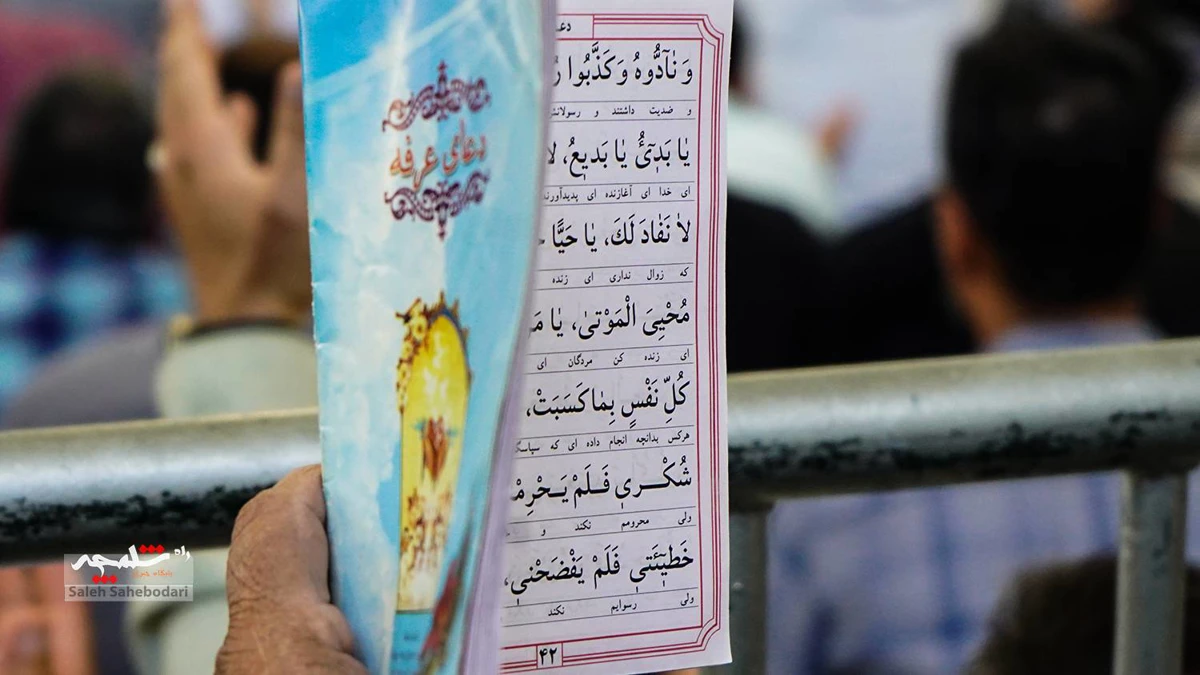 دعای عرفه
وَ نٰآدُّوهُ وَ كَذَّبُوا
و ضدیت داشتند و رسولانش
یٰا بَدٓیُٔ یٰا بَدیعُ، لا
ای خدا ای آغازنده ای پدیدآورنده
لاٰ نَفٰادَ لَكَ، یٰا حَیًّا
که زوال نداری ای زنده
مُحْیِیَ الْمَوْتیٰ، یٰا
ای زنده کن مردگان ای
کُلِّ نَفْسٍ بِمٰا کَسَبَتْ،
هرکس بدانچه انجام داده ای که
شُکْــری فَــلَمْ
ولی محرومم نکند و
خَطیٓئَتی فَلَمْ یَفْضَحْنی،
ولی رسوایم نکند
۴۲
راه شلمچه
Saleh Sahebodari